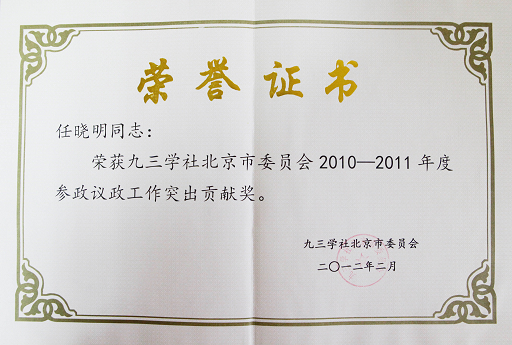 荣誉证书
任晓明同志：
荣获九三学社北京市委员会2010—2011年度
参政议政工作突出贡献奖。
九三学社北京市委员会
二〇一二年二月